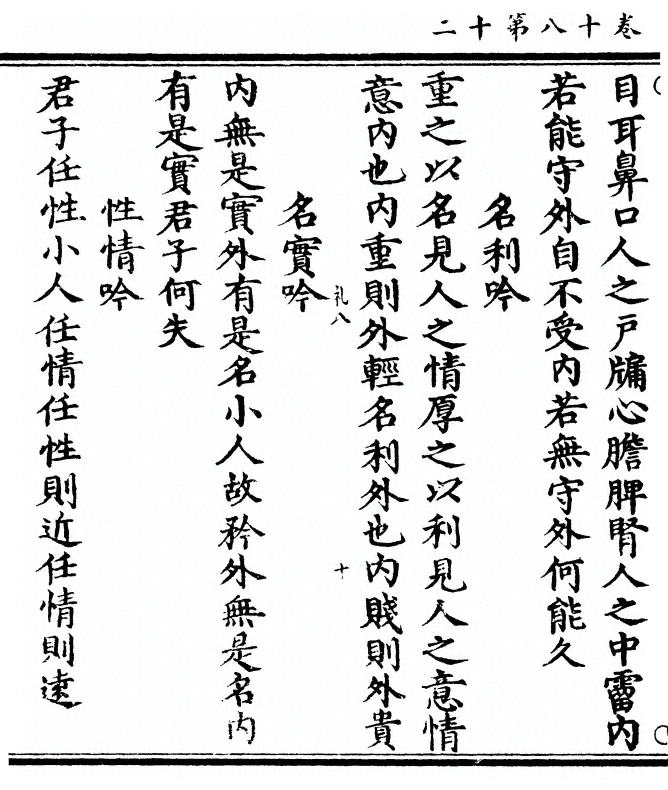 卷十八第十二
目耳鼻口人之戶牖心膽脾腎人之中霤内
若能守外自不受内若無守外何能久
名利吟
重之以名見人之情厚之以利見人之意情
意内也内重則外輕名利外也内賤則外貴
礼八
十
名實吟
内無是實外有是名小人故矜外無是名内
有是實君子何失
性情吟
君子任性小人任情任性則近任情則遠